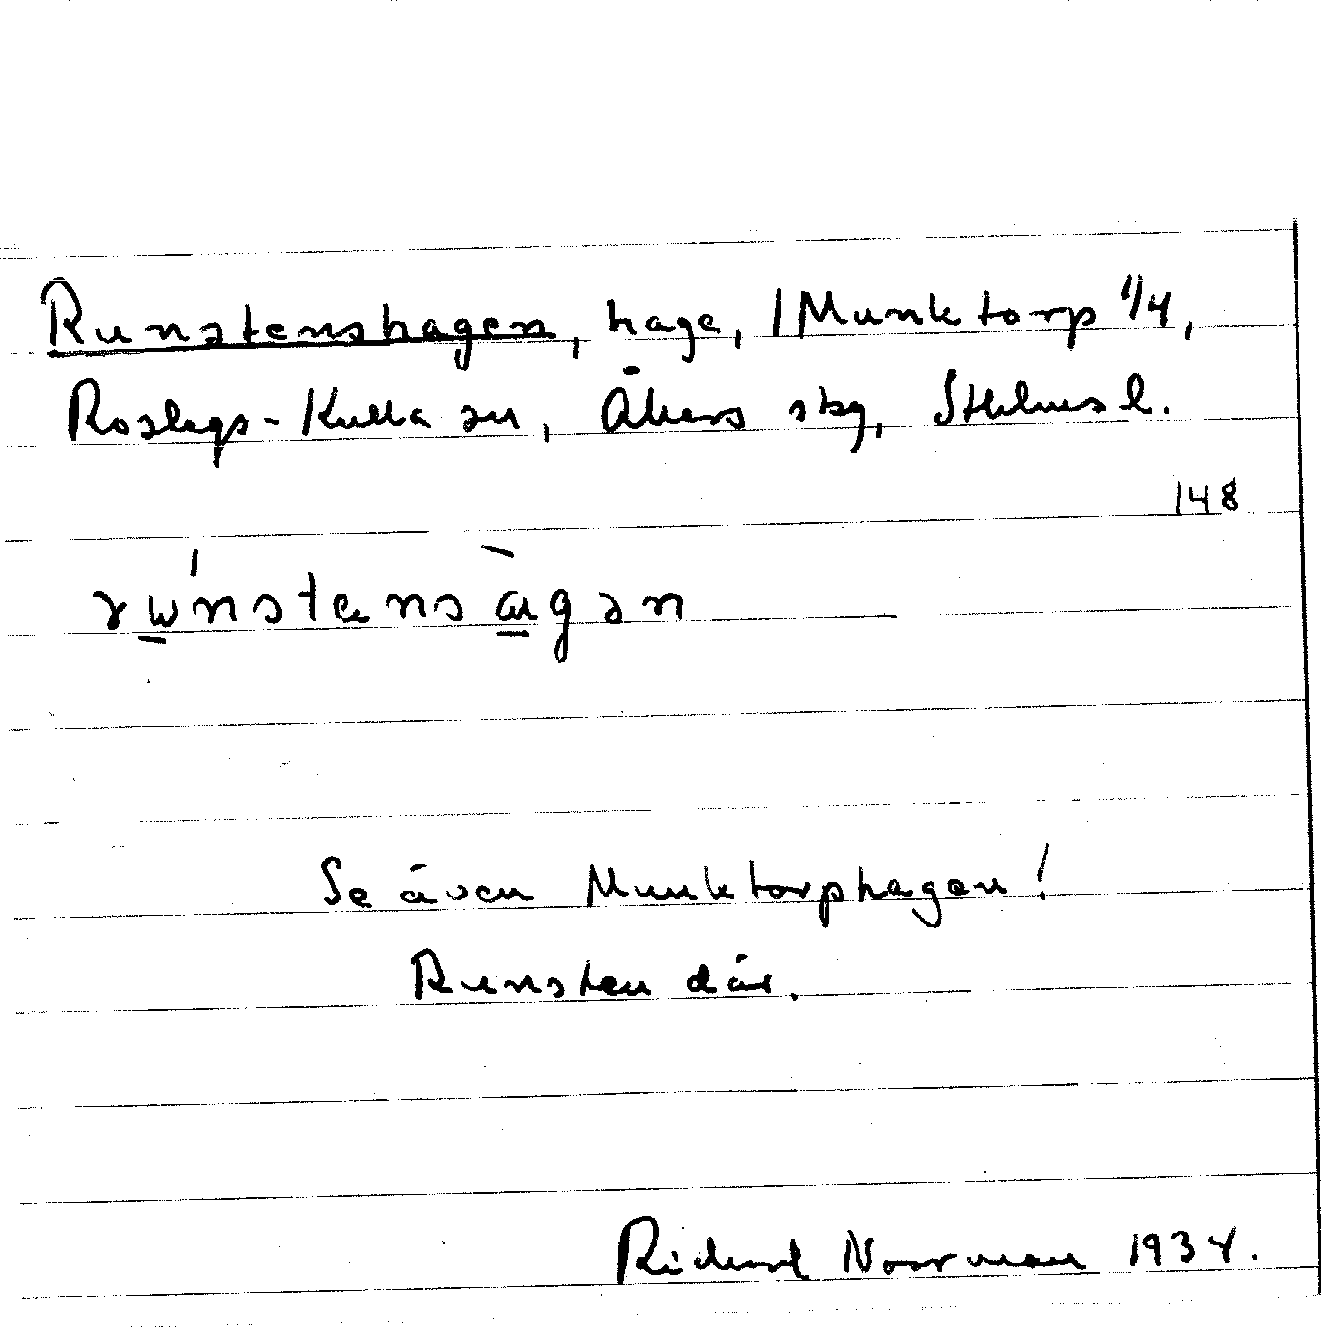 Runstenshagen, hage, 1 Munktorp 1/4,
Roslags-Kulla sn, Åkers skg, Sthlms l.
148
Se även Munktorphagen!
Runsten där.
Richard Noorman 1934.